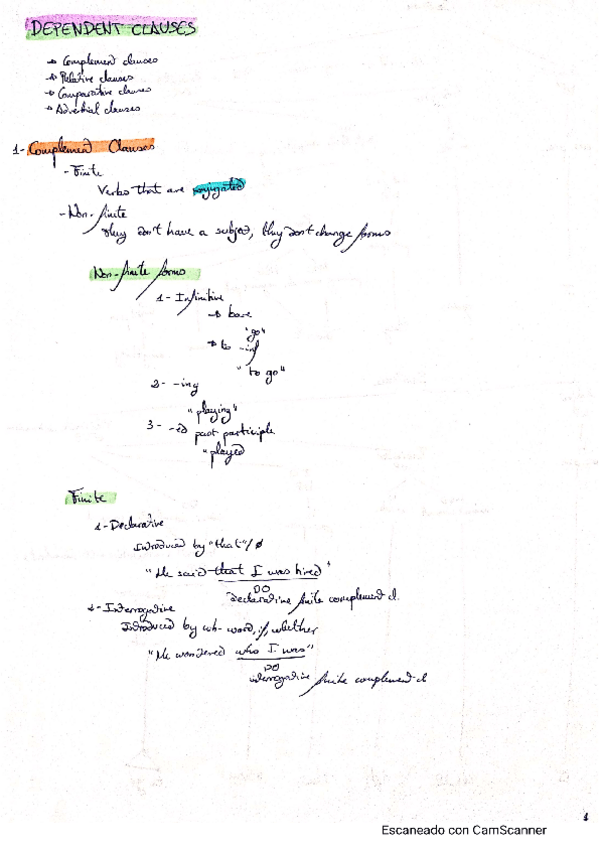 DEPENDENT CLAUSES
→ Complement clauses
→ Relative clauses
→ Comparative clauses
→ Adverbial clauses
1- Complement Clauses
- Finite
Verbs that are conjugated
- Non-finite
They don't have a subject, they don't change forms
Non-finite forms
1- Infinitive
→ bare
"go"
→ to -inf
"to go"
2- -ing
"playing"
3- -ed past participle
"played
Finite
1- Declarative
Introduced by "that"/ø
"He said that I was hired"
DO
declarative finite complement cl.
2- Interrogative
Introduced by wh-word, if, whether
"He wondered who I was"
DO
interrogative finite complement cl
1
Escaneado con CamScanner